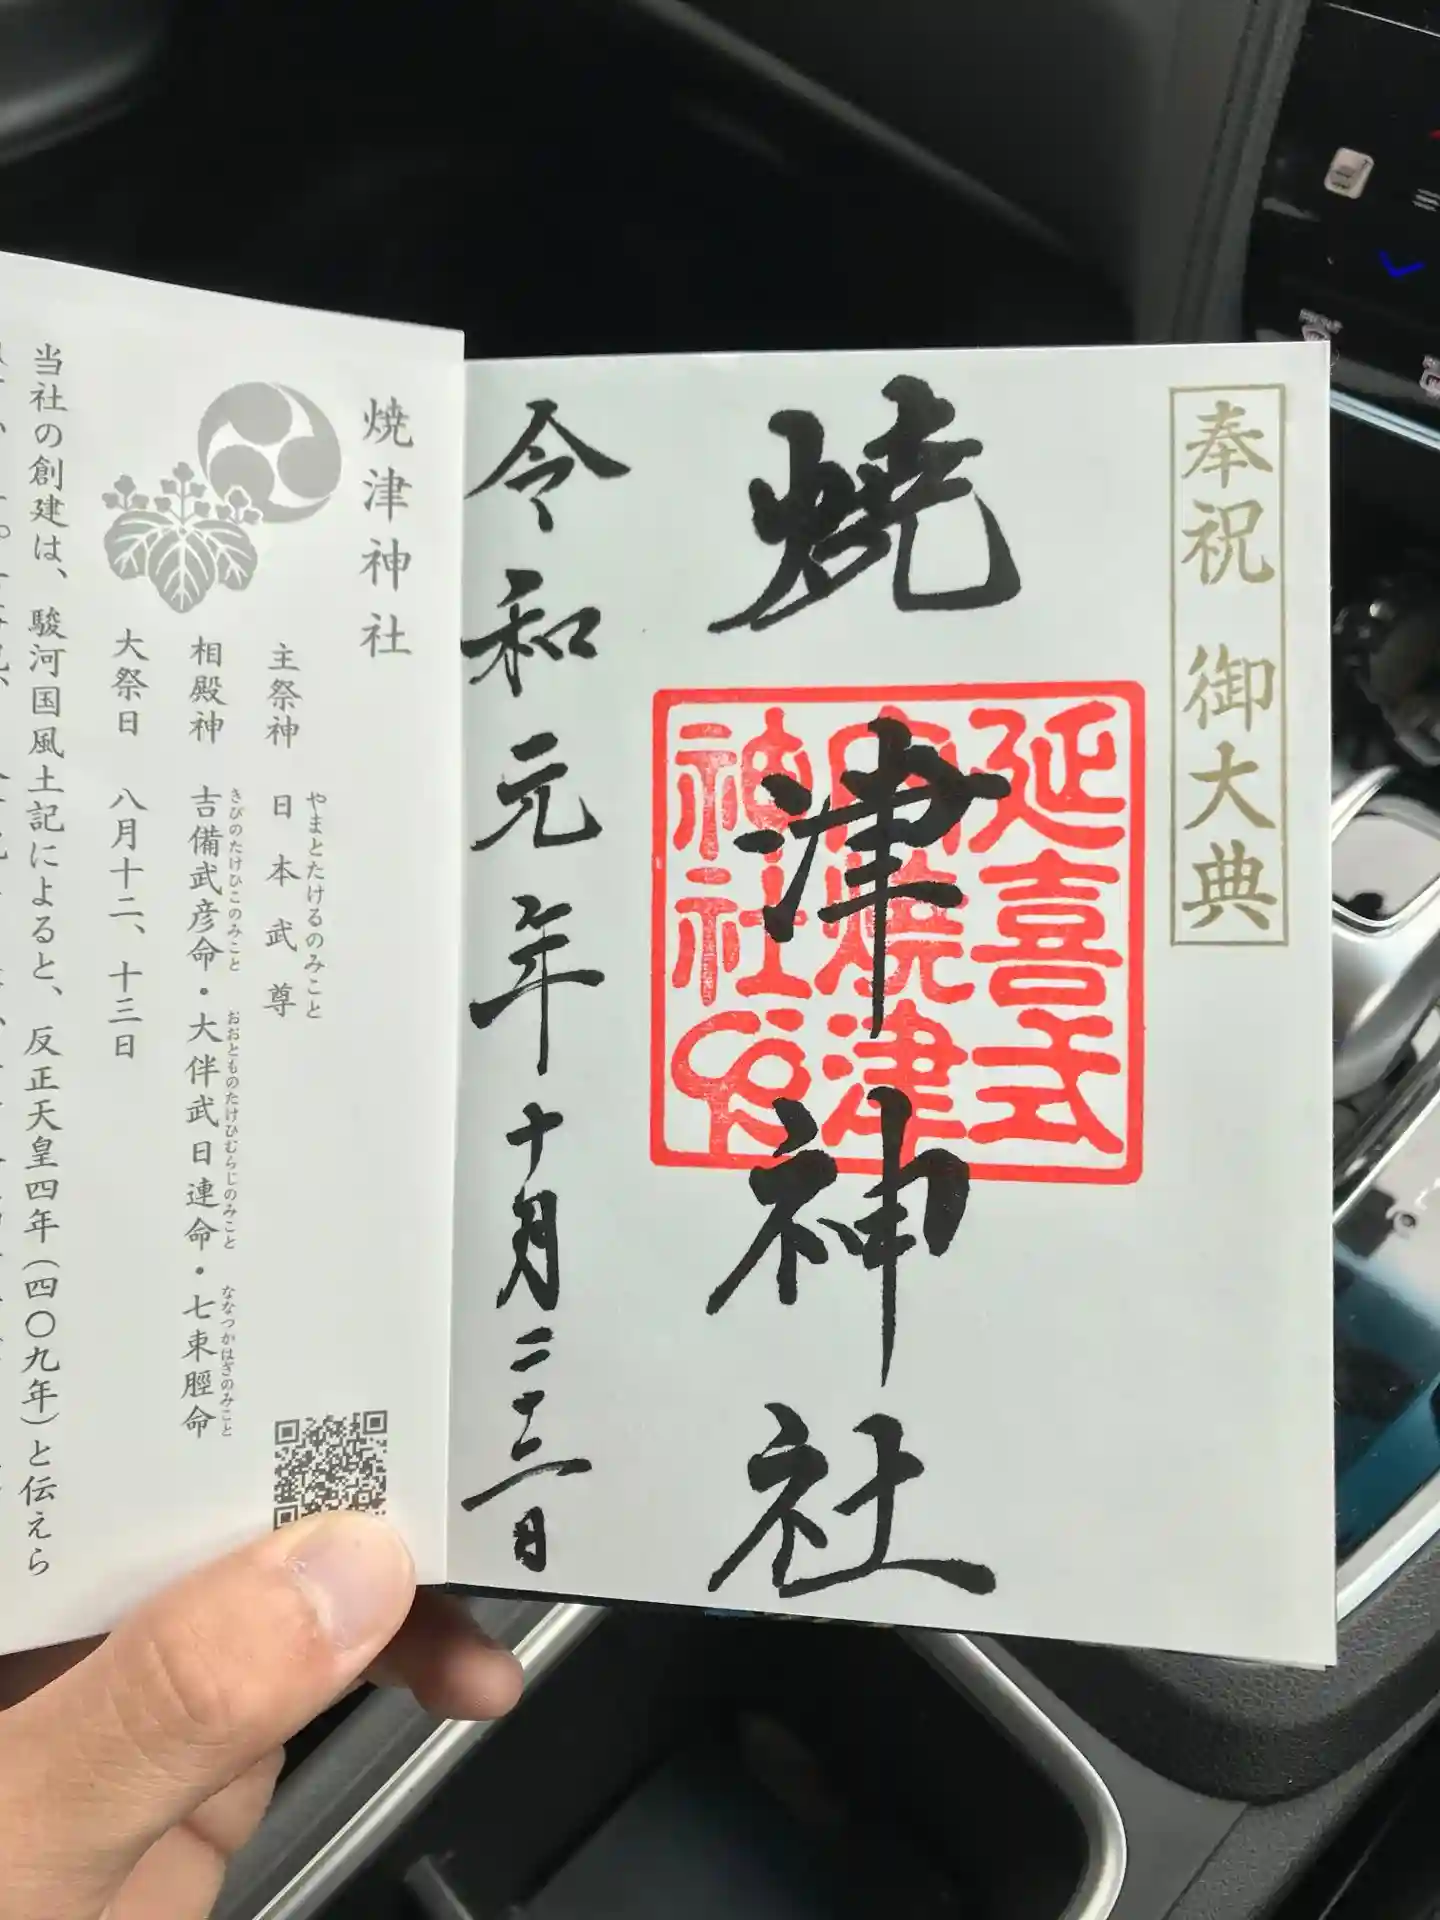 奉祝 御大典
焼津神社
延喜式
内焼津
神社印
令和元年十月二十二日
焼津神社
やまとたけるのみこと
主祭神 日本武尊
きびのたけひこのみこと おおとものたけひむらじのみこと ななつかはぎのみこと
相殿神 吉備武彦命・大伴武日連命・七束脛命
大祭日 八月十二、十三日
当社の創建は、駿河国風土記によると、反正天皇四年(四〇九年)と伝えら